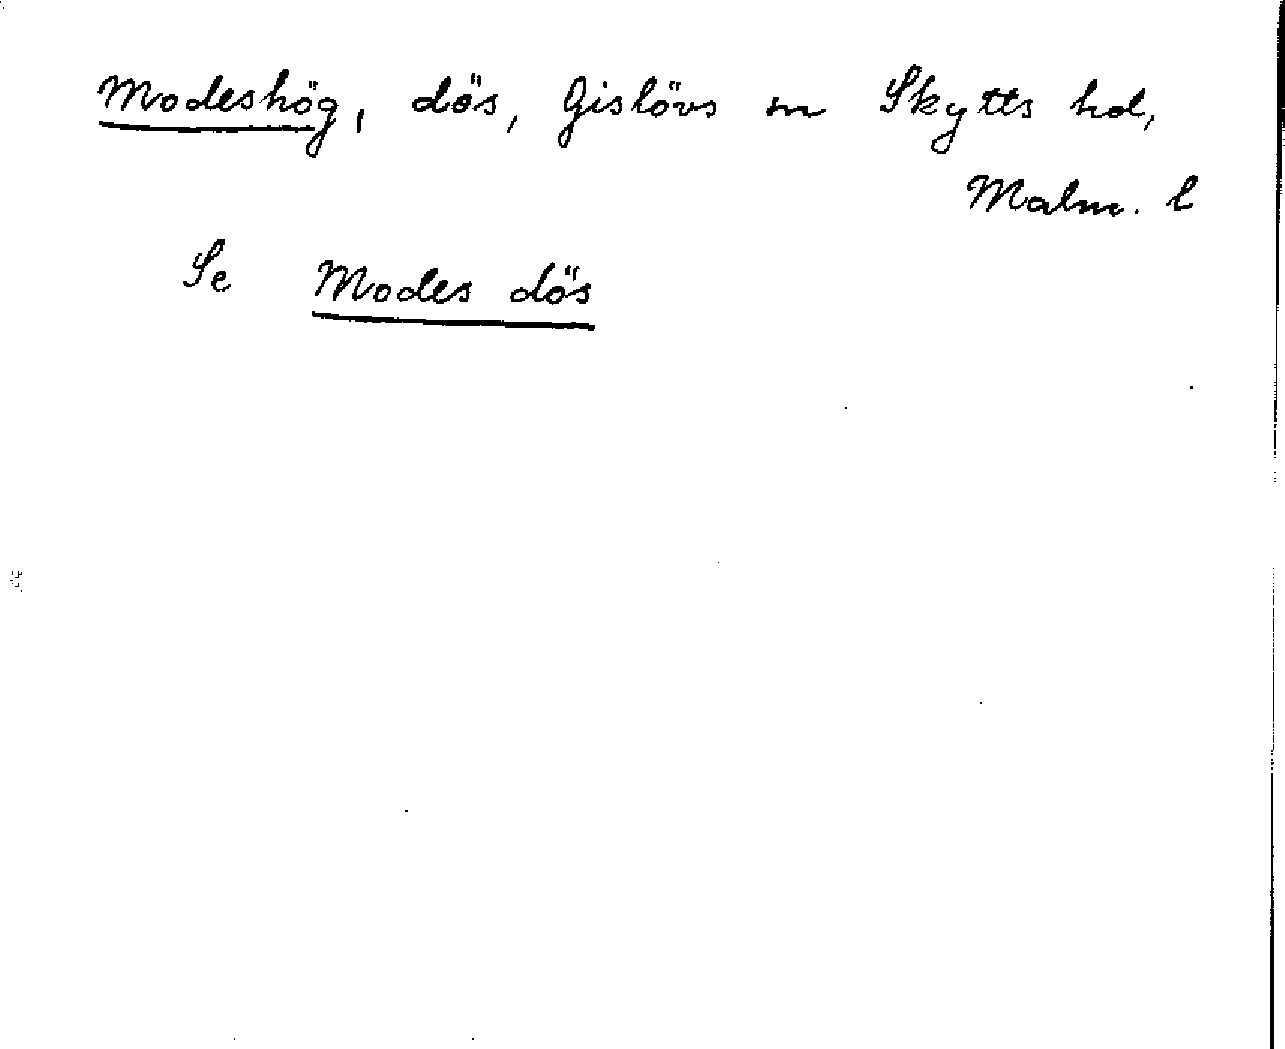 Modeshög, dös, Gislövs sn Skytts hd,
Malm. l
Se Modes dös